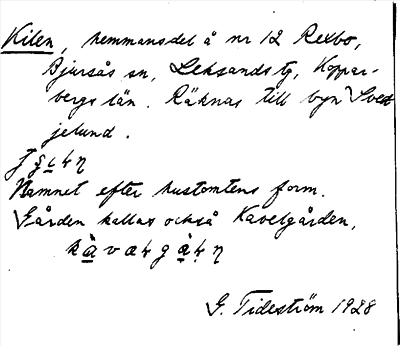 Kilen, hemmansdel å nr 12 Rexbo,
Bjursås sn, Leksands tg, Koppar-
bergs län. Räknas till byn Sved-
jelund.
Namnet efter hustomtens form.
Gården kallas också Kavelgården,
G. Tideström 1928